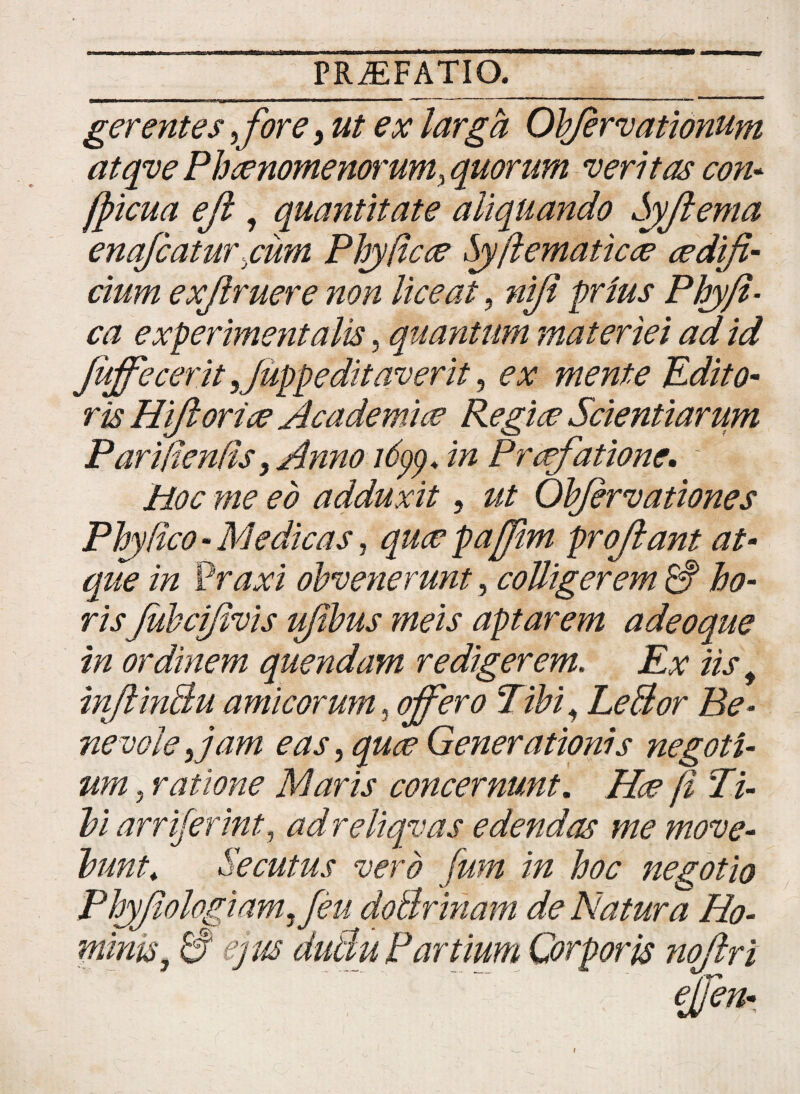 PRÆFATIO.
gerentes, fore, ut ex largâ ObſervationUm
atqve Phœnomenorum, quorum veritas con-
ſpicua eſt, quantitate aliquando Syſtema
enaſcatur, cùm Phyſicæ Syſtematicæ ædifi-
cium exſtruere non liceat, niſi priùs Phyſi-
ca experimentalis, quantum materiei ad id
ſuffecerit, ſuppeditaverit, ex mente Edito-
ris Hiſtoriæ Academiæ Regiæ Scientiarum
Pariſienſis, Anno 1699. in Præfatione.
Hoc me eò adduxit, ut Obſervationes
Phyſico-Medicas, quæ paſſim proſtant at-
que in Praxi obvenerunt, colligerem & ho-
ris ſubciſivis uſibus meis aptarem adeoque
in ordinem quendam redigerem. Ex iis,
inſtinctu amicorum, offero Tibi, Lector Be-
nevole, jam eas, quæ Generationis negoti-
um, ratione Maris concernunt. Hæ ſi Ti-
bi arriſerint, ad reliqvas edendas me move-
bunt. Secutus verò ſum in hoc negotio
Phyſiologiam, ſeu doctrinam de Natura Ho-
minis, & ejus ductu Partium Corporis noſtri
eſſen-